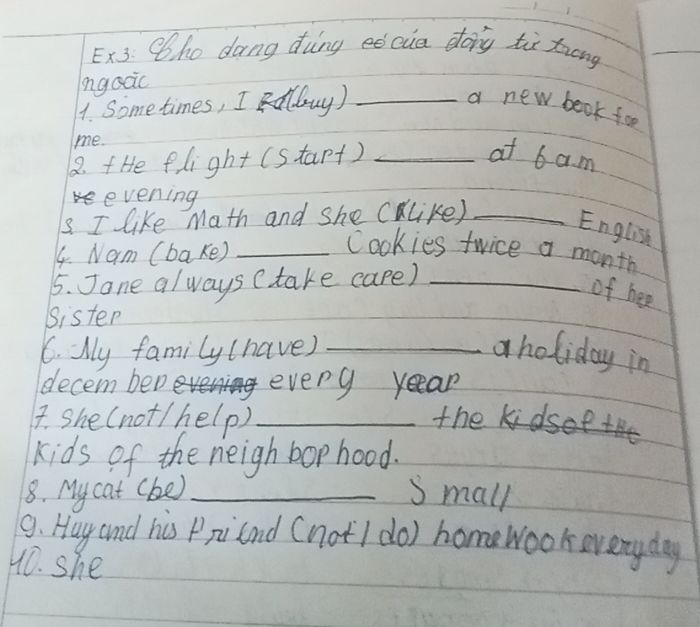 Ex3: Cho dạng đúng có của động từ trong
ngoặc
1. Sometimes, I (buy) ________ a new book for
me.
2. tHe flight (start) ________ at 6 am
evening
3. I like Math and she (like) ________ English
4. Nam (bake) ________ Cookies twice a month
5. Jane always (take care) ________ of her
Sister
6. My family (have) ________ a holiday in
december evening every year
7. She (not/help) ________ the kidsof the
kids of the neighborhood.
8. My cat (be) ________ small
9. Huy and his friend (not/do) homewook everyday
10. she